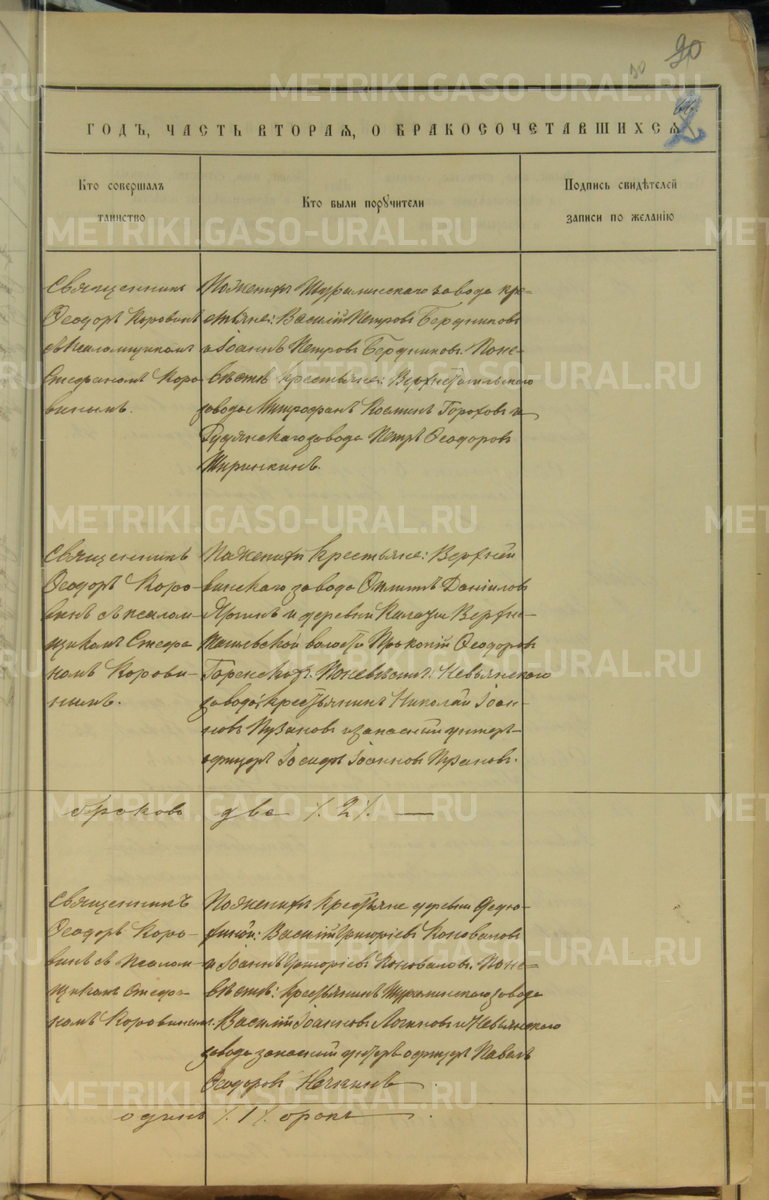 20
METRIKI.GASO-URAL.RU
ГОДЪ, ЧАСТЬ ВТОРАЯ, О БРАКОСОЧЕТАВШИХСЯ
Кто совершалъ
таинство
Кто были поручители
Подпись свидѣтелей
записи по желанію
Священникъ
Ѳеодоръ Коровинъ
съ псаломщикомъ
Стефаномъ Коро-
винымъ.
По женихѣ Шуралинскаго завода кре-
стьяне: Василій Петровъ Бердниковъ
и Іоаннъ Петровъ Бердниковъ. По не-
вѣстѣ крестьяне: Верхнетагильскаго
завода Митрофанъ Косминъ Гороховъ и
Рудянскаго завода Петръ Ѳеодоровъ
Ширинкинъ.
Священникъ
Ѳеодоръ Коро-
винъ съ псалом-
щикомъ Стефа
номъ Корови-
нымъ.
По женихѣ крестьяне: Верхней
винскаго завода Филиппъ Даніиловъ
и деревни Верхне-
волости Прокопій Ѳеодоровъ
По невѣстѣ: Невьянскаго
завода, крестьянинъ Николай Іоан-
новъ Пузановъ и запасный унтеръ-
офицеръ Іосифъ Іоанновъ Пузановъ.
браковъ два /.2/. —
Священникъ
Ѳеодоръ Коро-
винъ съ псалом-
щикомъ Стефа-
номъ Коровинымъ.
По женихѣ крестьяне деревни Ѳедь-
Василій Григоріевъ Коноваловъ
и Іоаннъ Григоріевъ Коноваловъ. По не-
вѣстѣ: крестьянинъ Шуралинскаго завода
Василій Іоанновъ Логиновъ и Невьянскаго
завода запасный унтеръ офицеръ Павелъ
Ѳеодоровъ
одинъ /.1/. бракъ